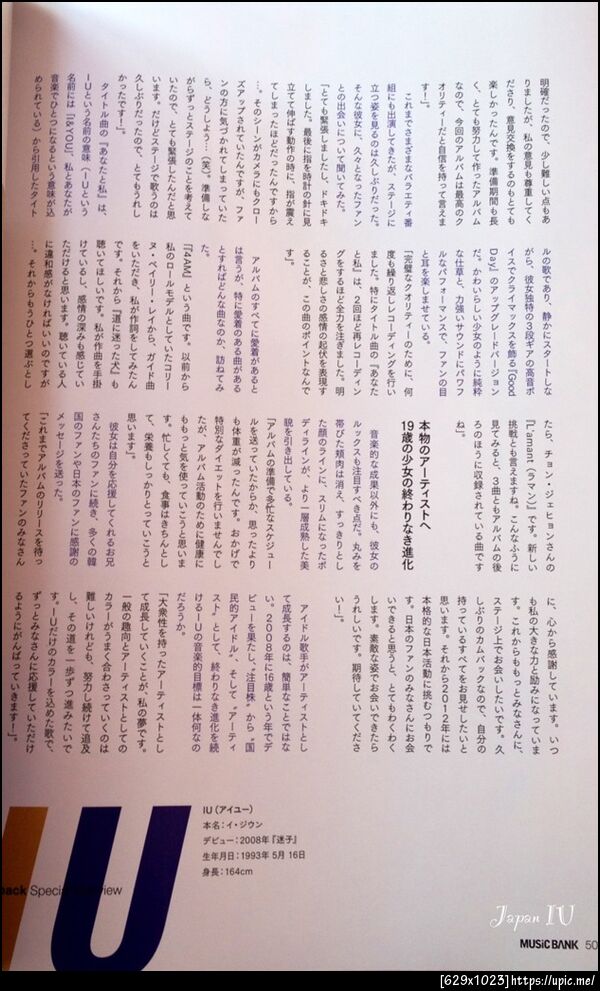 明確だったので、少し難しい点もあ
りましたが、私の意見も尊重してく
ださり、意見交換をするのもとても
楽しかったんです。準備期間も長
く、とても努力して作ったアルバム
なので、今回のアルバムは最高のク
オリティーだと自信を持って言えま
す!」。
これまでさまざまなバラエティ番
組にも出演してきたが、ステージに
立つ姿を見るのは久しぶりだった。
そんな彼女に、久々となったファン
との出会いについて聞いてみた。
「とても緊張しましたし、ドキドキ
しました。最後に指を時計の針に見
立てて伸ばす動作の時に、指が震え
てしまったほどだったんですから
…。そのシーンがカメラにもクロー
ズアップされていたんですが、ファ
ンの方に気づかれてしまっていた
ら、どうしよう…(笑)。準備しな
がらずっとステージのことを考えて
いたので、とても緊張したんだと思
います。だけどステージで歌うのは
久しぶりだったので、とてもうれし
かったです!」。
タイトル曲の『あなたと私』は、
IUという名前の意味(IUという
名前には『I&YOU』、私とあなたが
音楽でひとつになるという意味が込
められている)から引用したタイト
ルの歌であり、静かにスタートしな
がら、彼女独特の3段ギアの高音ボ
イスでクライマックスを飾る『Good
Day』のアップグレードバージョン
だ。かわいらしい少女のように純粋
な仕草と、力強いサウンドにパワフ
ルなパフォーマンスで、ファンの目
と耳を楽しませている。
「完璧なクオリティーのために、何
度も繰り返しレコーディングを行い
ました。特にタイトル曲の『あなた
と私』は、2回ほど再レコーディン
グをするほど全力を注ぎました。明
るさと悲しさの感情の起伏を表現す
ることが、この曲のポイントなんで
す」。
アルバムのすべてに愛着があると
は言うが、特に愛着のある曲がある
とすればどんな曲なのか、訪ねてみ
た。
「『4AM』という曲です。以前から
私のロールモデルとしていたコリー
ヌ・ベイリー・レイから、ガイド曲
をいただき、私が作詞をしてみたん
です。それから『道に迷った犬』も
聴いてほしいです。私が作曲を手掛
けているし、感情の深みも感じてい
ただけると思います。聴いている人
に違和感がなければいいのですが
…。それからもうひとつ選ぶとし
たら、チョン・ジェヒョンさんの
『L'amant(ラマン)』です。新しい
挑戦とも言えますね。こんなふうに
見てみると、3曲ともアルバムの後
ろのほうに収録されている曲です
ね」。
本物のアーティストへ
19歳の少女の終わりなき進化
音楽的な成果以外にも、彼女の
ルックスも注目すべき点だ。丸みを
帯びた頬肉は消え、すっきりとし
た顔のラインに、スリムになったボ
ディラインが、より一層成熟した美
貌を引き出している。
「アルバムの準備で多忙なスケジュー
ルを送っていたからか、思ったより
も体重が減ったんです。おかげで
特別なダイエットを行いませんでし
たが、アルバム活動のために健康に
ももっと気を使っていこうと思いま
す。忙しくても、食事はきちんとし
て、栄養もしっかりとっていこうと
思います」。
彼女は自分を応援してくれるお兄
さんたちのファンに続き、多くの韓
国のファンや日本のファンに感謝の
メッセージを送った。
「これまでアルバムのリリースを待っ
てくださっていたファンのみなさん
に、心から感謝しています。いつ
も私の大きな力と励みになっていま
す。これからももっとみなさんに、
ステージ上でお会いしたいです。久
しぶりのカムバックなので、自分の
持っているすべてをお見せしたいと
思います。それから2012年には
本格的な日本活動に挑むつもりで
す。日本のファンのみなさんにお会
いできると思うと、とてもわくわく
します。素敵な姿でお会いできたら
うれしいです。期待していてくださ
い!」。
アイドル歌手がアーティストとし
て成長するのは、簡単なことではな
い。2008年に16歳という年でデ
ビューを果たし、“注目株”から“国
民的アイドル”、そして“アーティ
スト”として、終わりなき進化を続
けるIUの音楽的目標は一体何なの
だろうか。
「大衆性を持ったアーティストとし
て成長していくことが、私の夢です。
一般の趣向とアーティストとしての
カラーがうまく合わさっていくのは
難しいけれども、努力し続けて追及
し、その道を一歩ずつ進みたいで
す。IUだけのカラーを込めた歌で、
ずっとみなさんに応援していただけ
るようにがんばっていきます!」。
IU(アイユー)
本名:イ・ジウン
デビュー:2008年『迷子』
生年月日:1993年 5月16日
身長:164cm
IU
back Special
view
Japan IU
MUSIC BANK 50
[629x1023]https://upic.me/